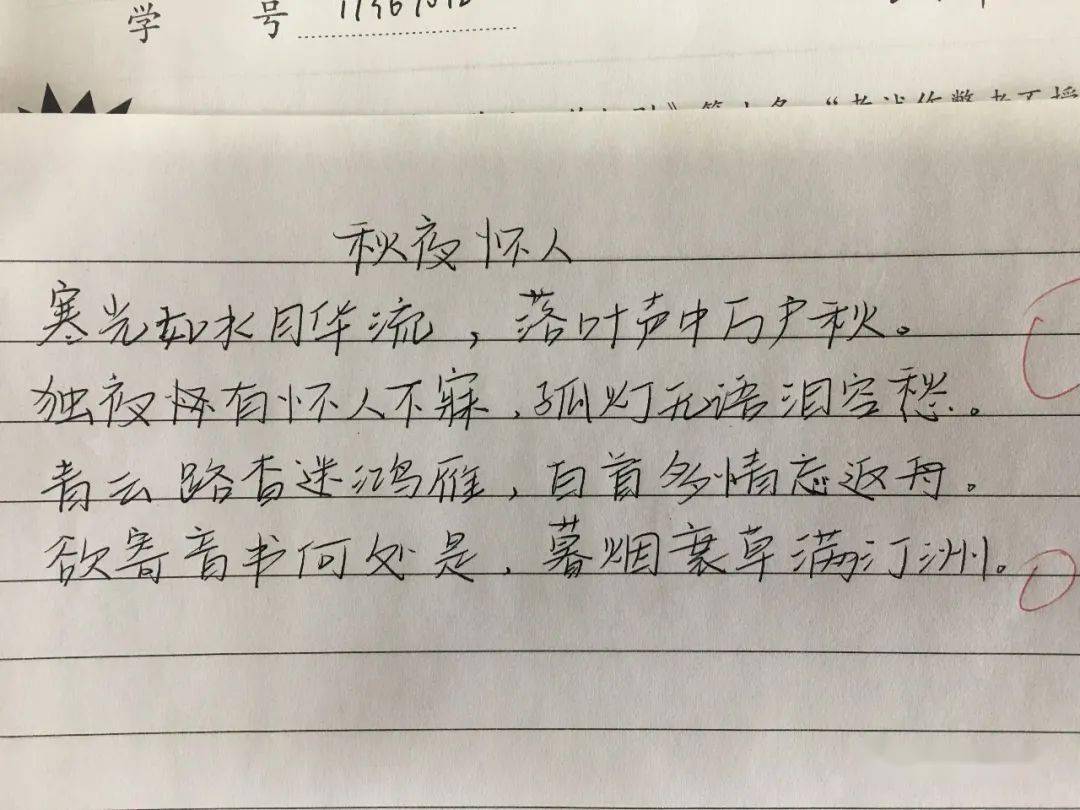 学 号
秋夜怀人
寒光如水月华流，落叶声中万户秋。
独夜有怀人不寐，孤灯无语泪空愁。
青云路杳迷鸿雁，白首多情忘返舟。
欲寄音书何处是，暮烟衰草满汀洲。